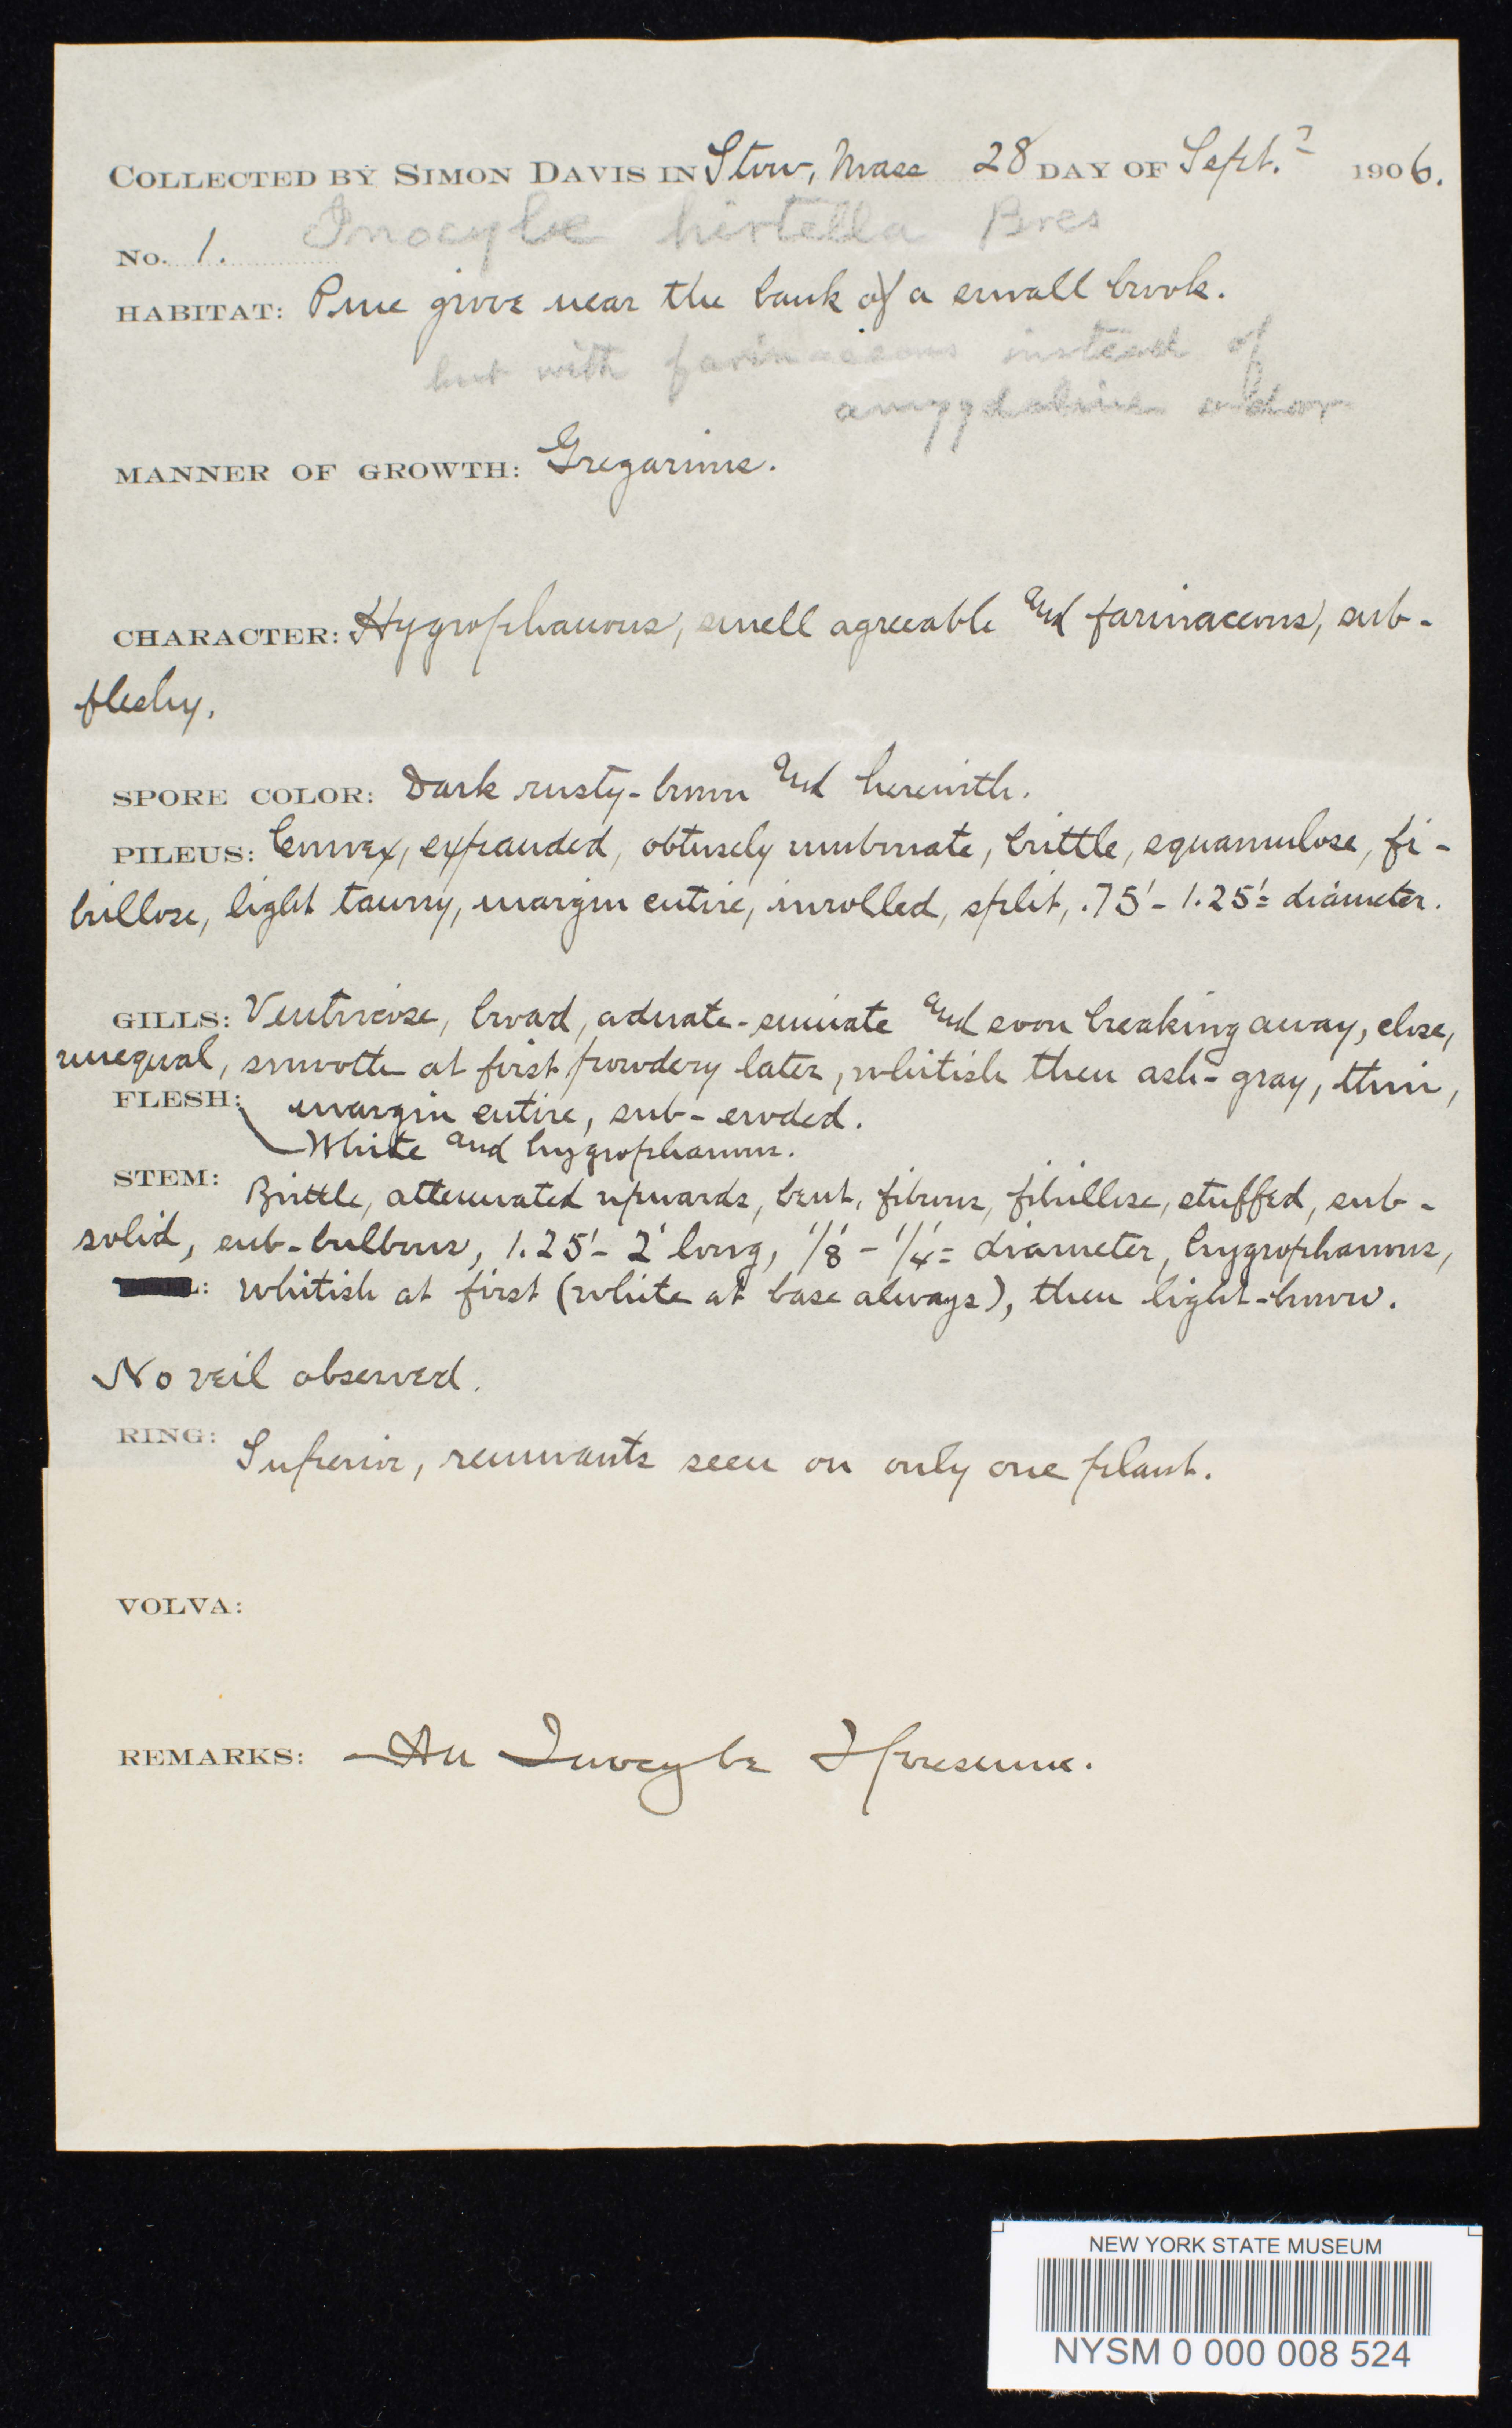 COLLECTED BY SIMON DAVIS IN Stow, Mass 28 DAY OF Sept. 1906.
Inocybe hirtella Bres
No. 1.
HABITAT: Pine grove near the bank of a small brook.
but with farinaceous instead of
amygdaline odor
MANNER OF GROWTH: Gregarious.
CHARACTER: Hygrophanous, smell agreeable and farinaceous, sub-
fleshy.
SPORE COLOR: Dark rusty-brown and herewith.
PILEUS: Convex, expanded, obtusely umbonate, brittle, squamulose, fi-
brillose, light tawny, margin entire, inrolled, split, .75'- 1.25'= diameter.
GILLS: Ventricose, broad, adnate-sinuate and soon breaking away, close,
unequal, smooth at first powdery later, whitish then ash-gray, thin,
FLESH: margin entire, sub-eroded.
White and hygrophanous.
STEM: Brittle, attenuated upwards, bent, fibrous, fibrillose, stuffed, sub-
solid, sub-bulbous, 1.25'- 2' long, 1/8' - 1/4'= diameter, hygrophanous,
: whitish at first (white at base always), then light-brown.
No veil observed.
RING: Superior, remnants seen on only one plant.
VOLVA:
REMARKS: An Inocybe I presume.
NEW YORK STATE MUSEUM
NYSM 0 000 008 524